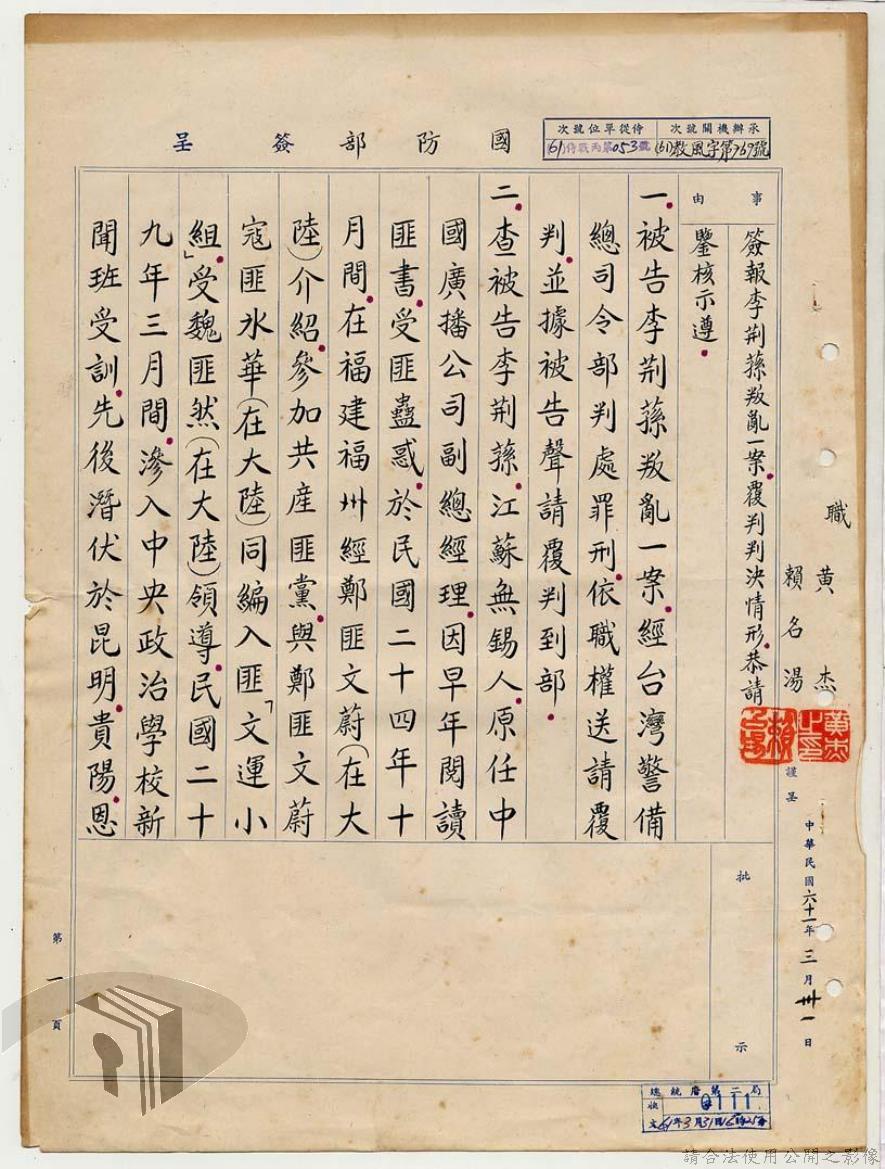 國防部簽呈
承辦機關號次
(61)教風字第769號
侍從單位號次
(61)侍戰丙第053號
職黃杰
賴名湯
謹呈
中華民國六十一年三月卅一日
事由
簽報李荊蓀叛亂一案，覆判判決情形，恭請
鑒核示遵。
一、被告李荊蓀叛亂一案，經台灣警備
總司令部判處罪刑，依職權送請覆
判，並據被告聲請覆判到部。
二、查被告李荊蓀，江蘇無錫人，原任中
國廣播公司副總經理，因早年閱讀
匪書，受匪蠱惑，於民國二十四年十
月間，在福建福州經鄭匪文蔚（在大
陸）介紹，參加共產匪黨，與鄭匪文蔚
寇匪冰華（在大陸）同編入匪「文運小
組」，受魏匪然（在大陸）領導，民國二十
九年三月間，滲入中央政治學校新
聞班受訓，先後潛伏於昆明，貴陽，恩
批示
第一頁
總統府第二局
收文
0111
61年3月31日
請合法使用公開之影像